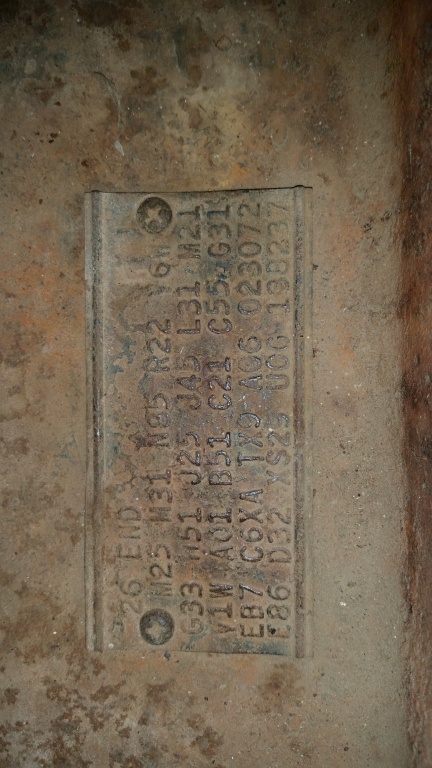 26 END
M25 M31 N85 R22 V6W
G33 H51 J25 J45 L31 M21
V1W A01 B51 C21 C55 G31
EB7 C6XA TX9 A06 023072
E86 D32 XS29 U0G 138237